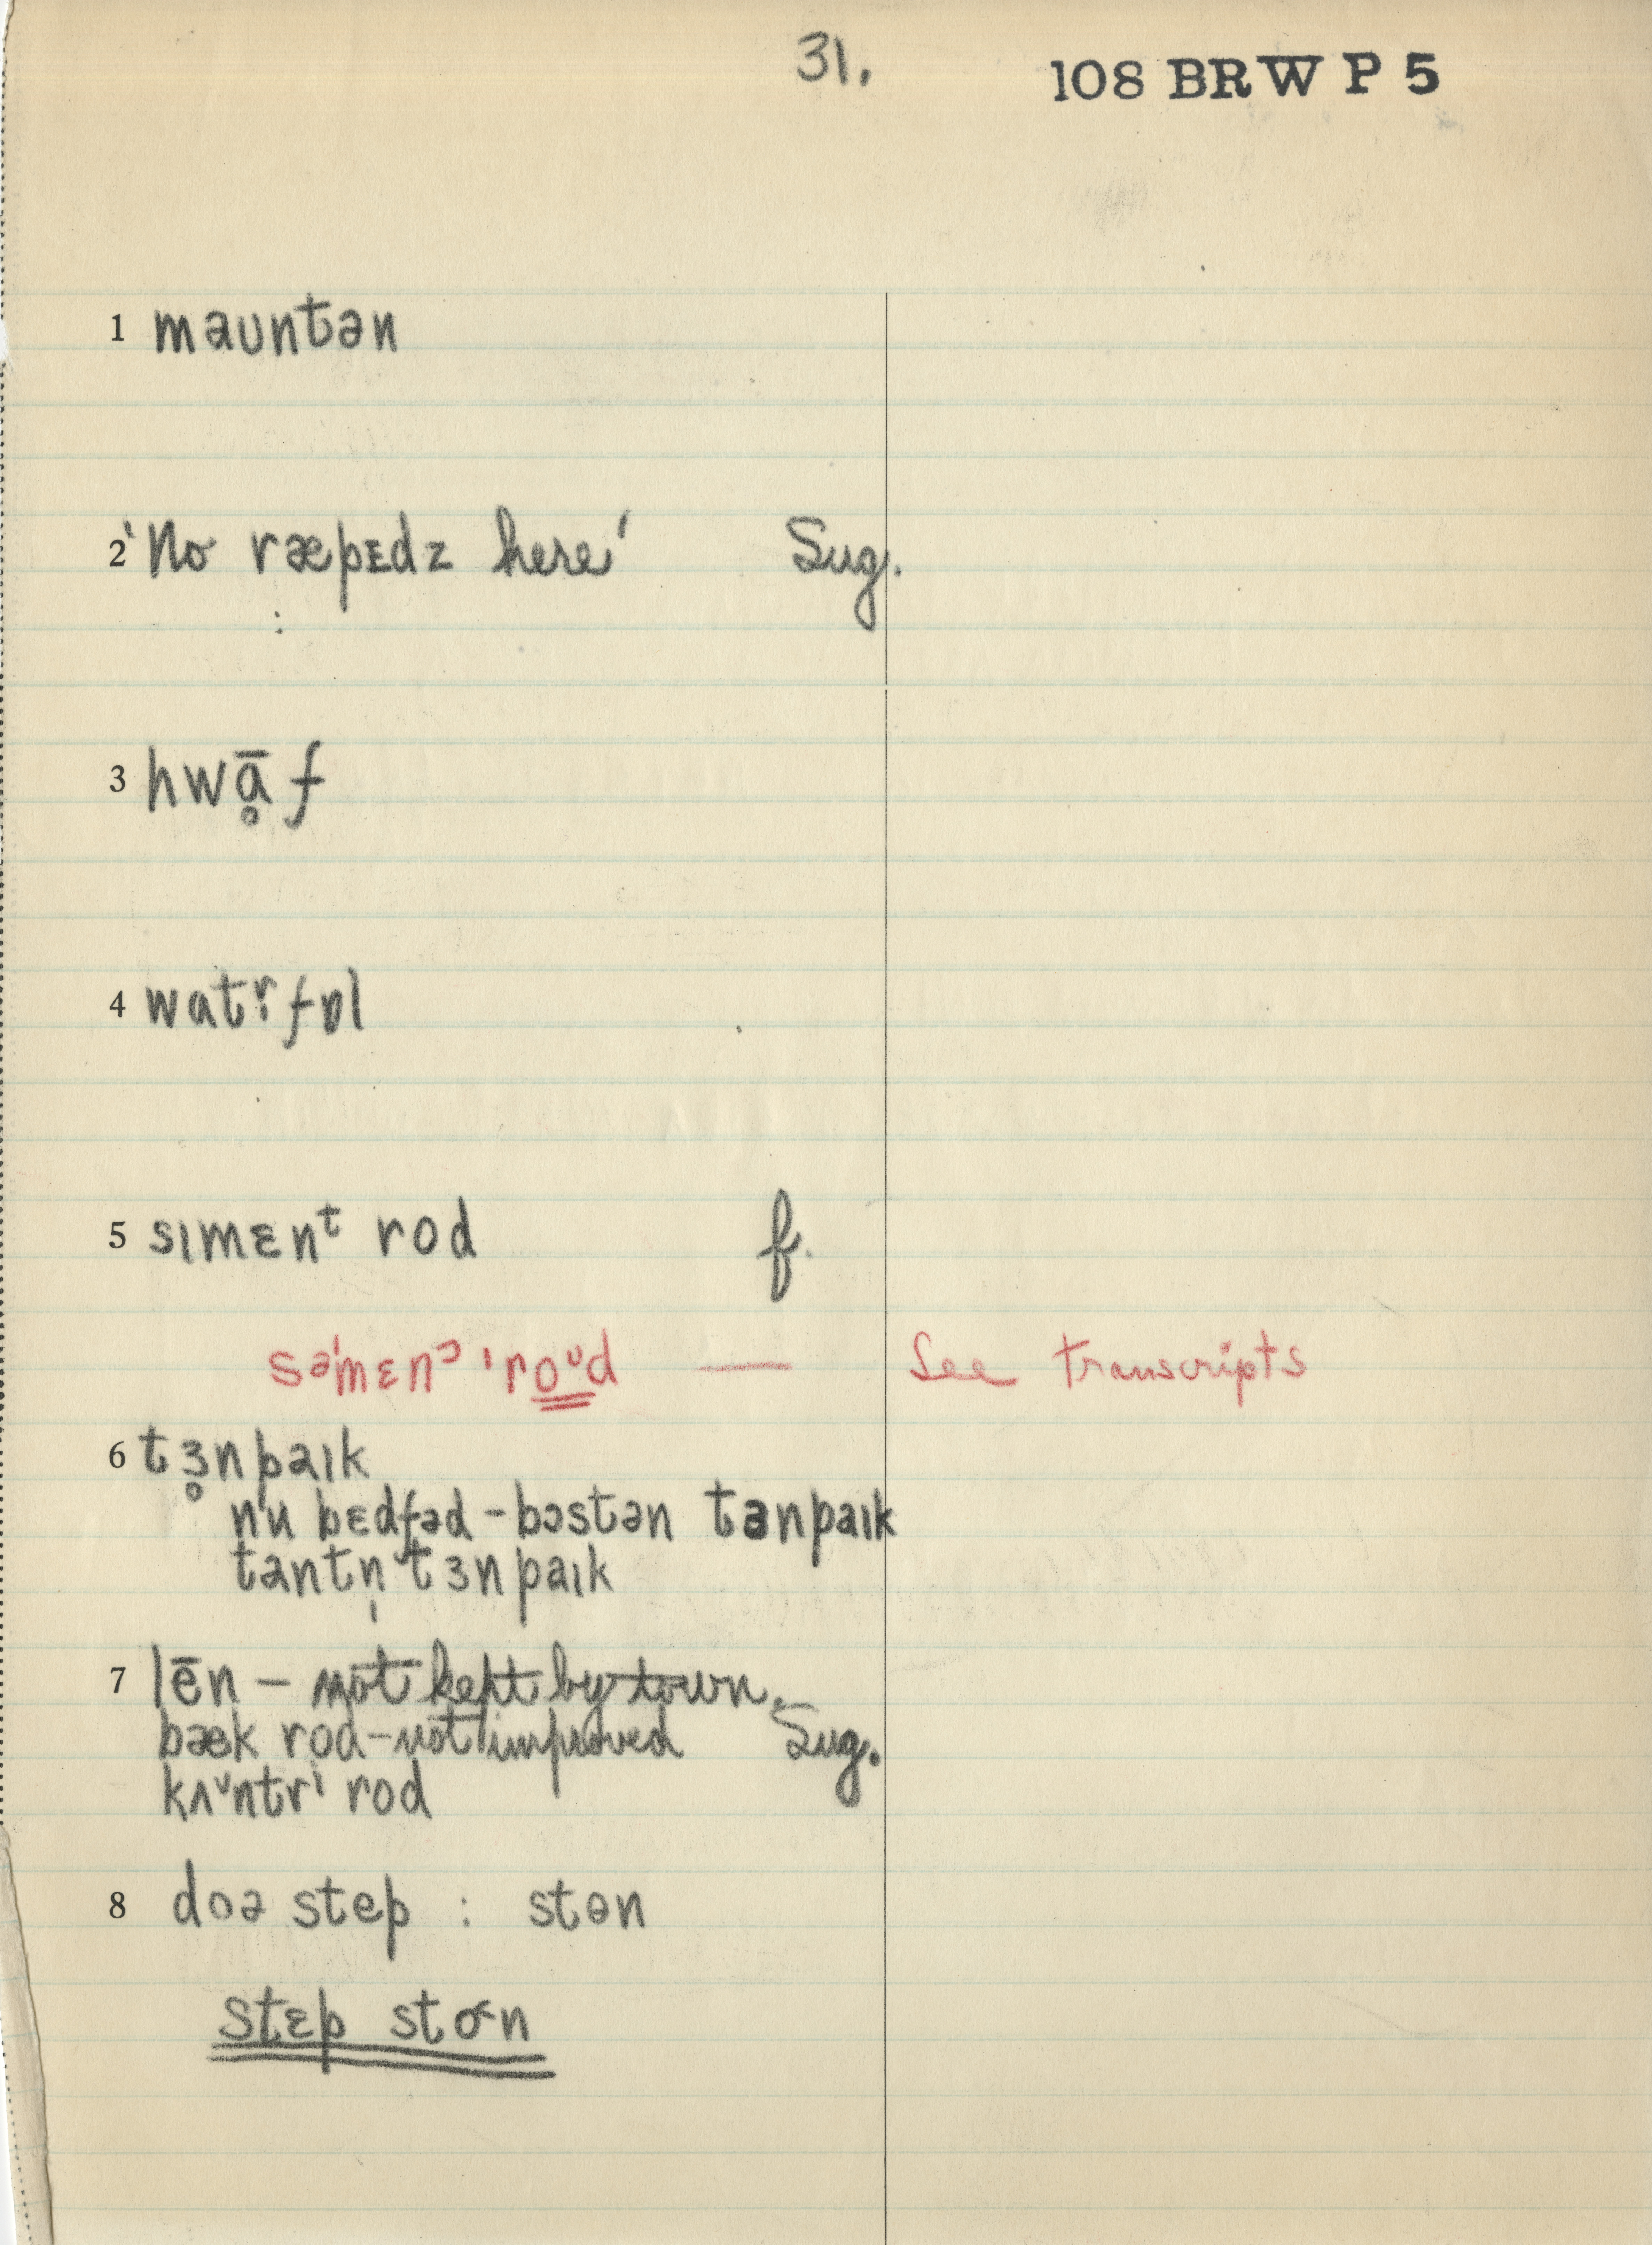 31. 108 BRW P 5
1 mauntən
2 'No ræpɛdz here' Sug.
3 hwɑ̥̄f
4 watɚfɒl
5 sɪmɛnᵗ rod f.
səˈmɛnˀ ˈroᶷd — See transcripts
6 tɜ̥npaɪk
nu bɛdfəd - bɔstən tɜnpaɪk
tantn̩ tɜnpaɪk
7 lēn - not kept by town.
bæk rod - not improved Sug.
kʌᶷntrⁱ rod
8 doə step : stɵn
stɛp stɵn